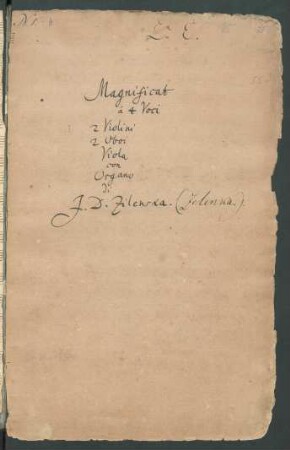 L. E.
Magnificat
à 4 Voci
2 Violini
2 Oboi
Viola
con
Organo
di
J. D. Zilencka. (Zelenna.)